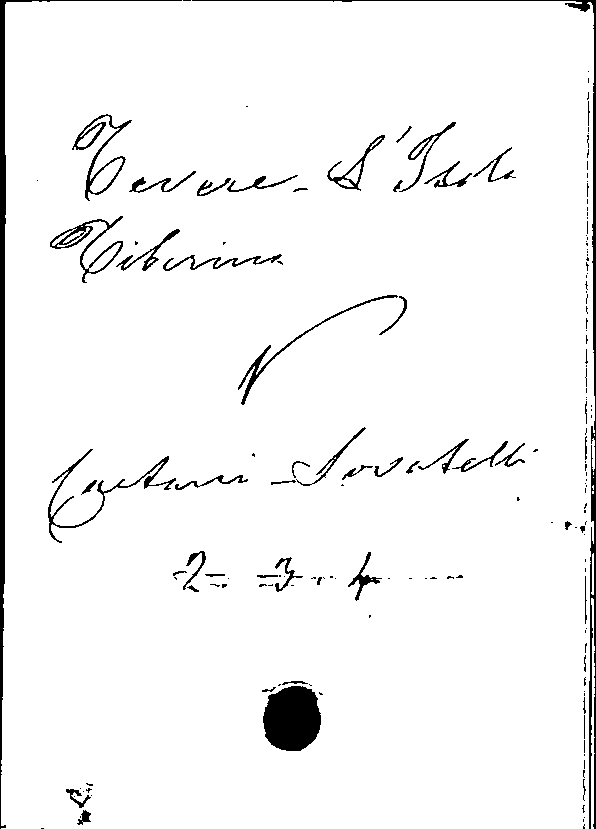 Tevere - L'Isola
Tiberina
V
Caetani - Lovatelli
2 = = 3 - - 4 - - -